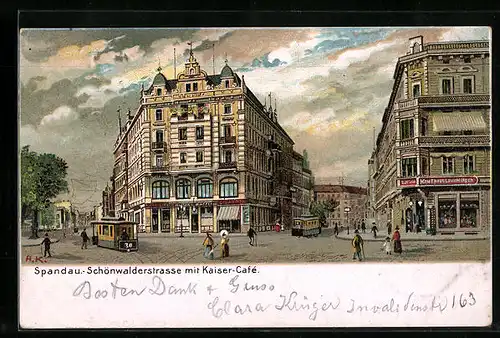 A.K.
Spandau.- Schönwalderstrasse mit Kaiser-Café.
Besten Dank & Gruss
Clara Krüger Invalidenstr 163